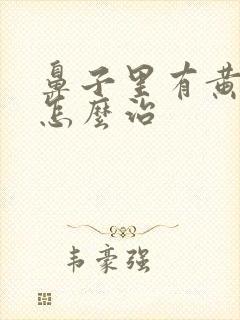 鼻子里有黄
怎麼治
韦豪强